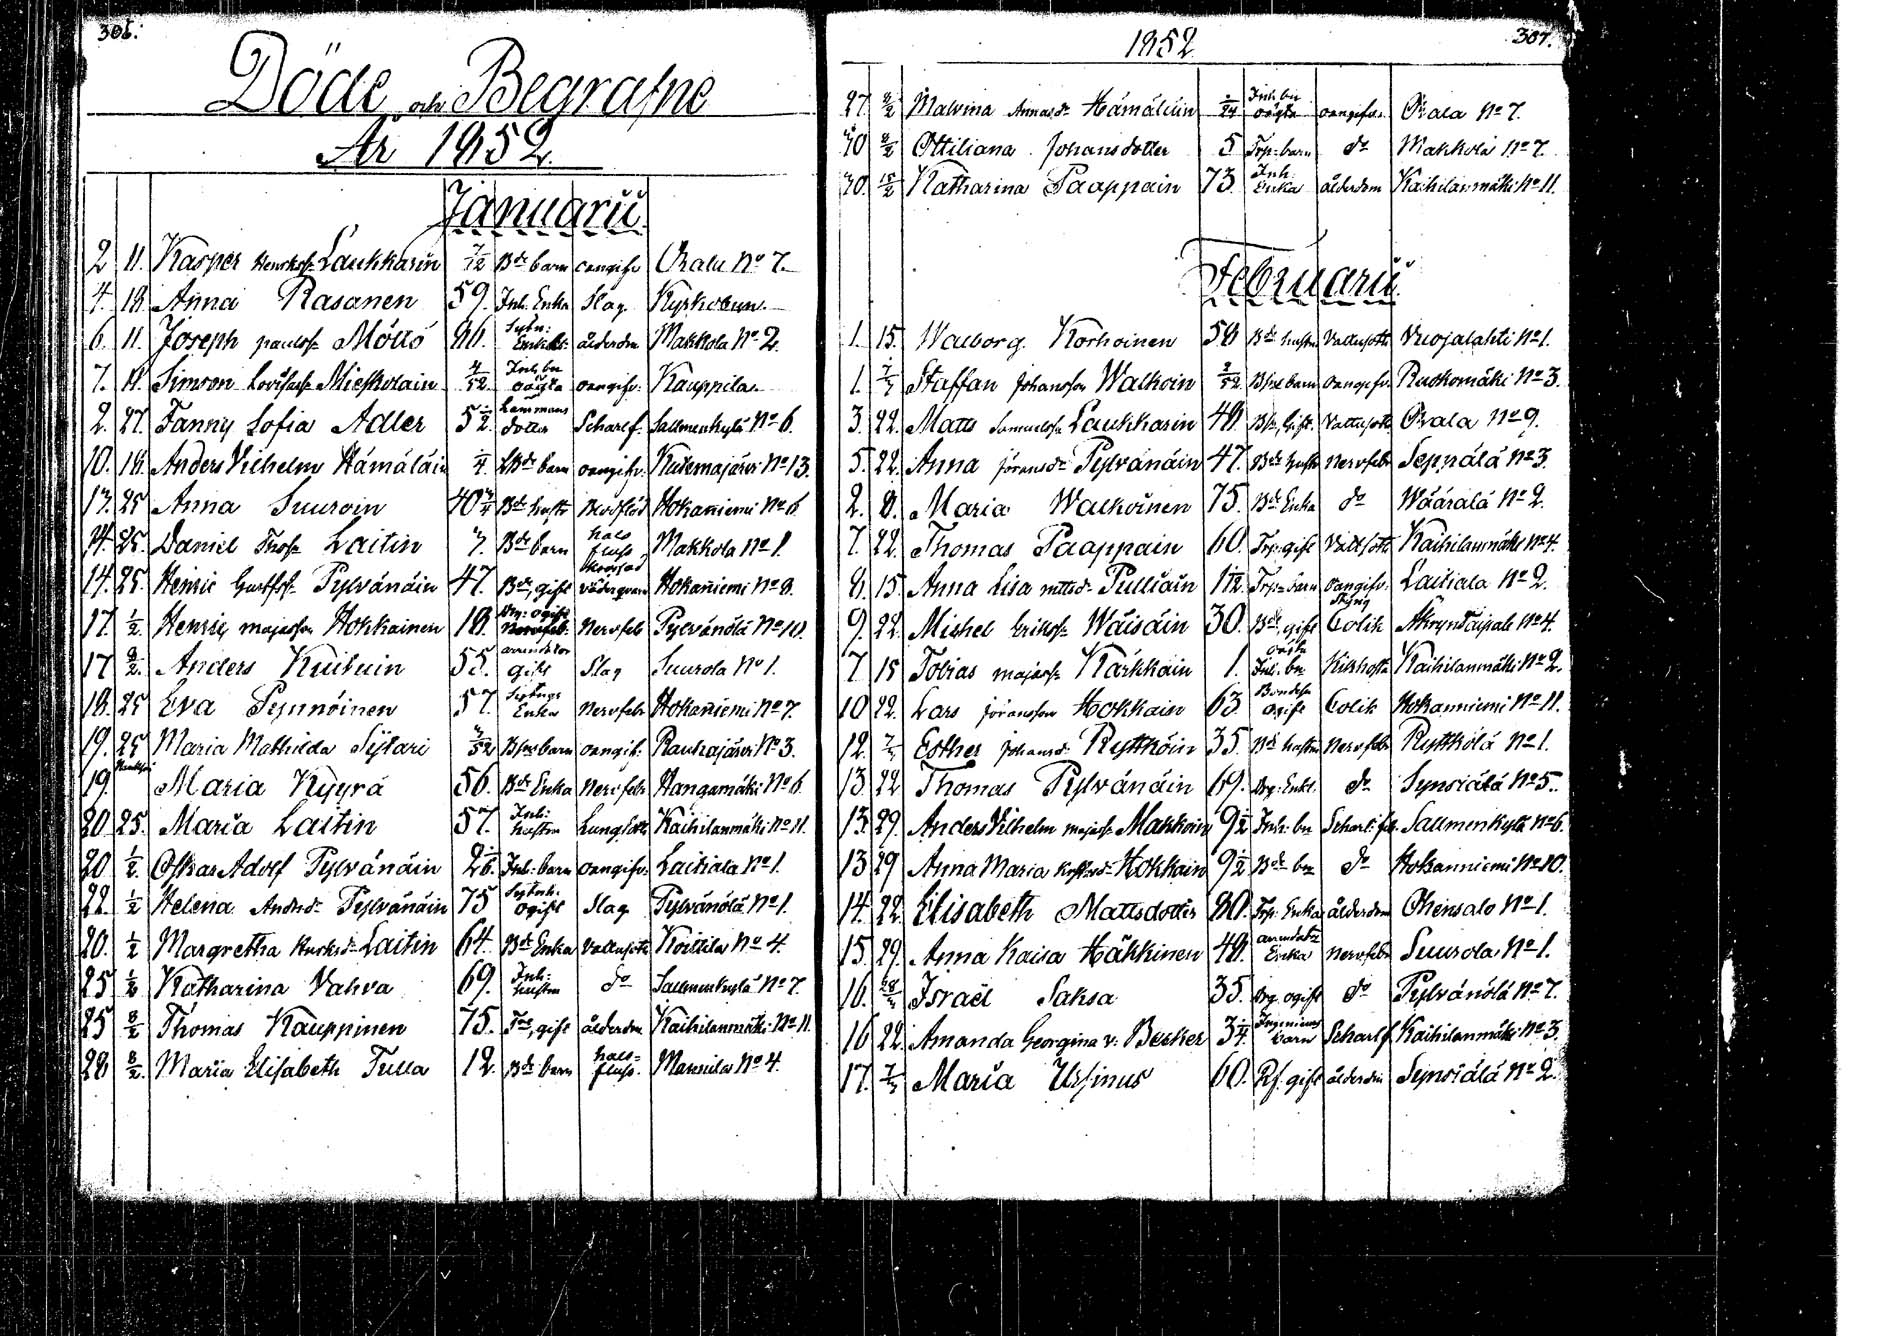 306.
Döde och Begrafne
År 1852.
Januarii
2 11. Kasper Henrikss. Laukkarin 7/12 Bde barn oangifv Orala No 7.
4. 18. Anna Rasanen 59. Inh. Enka Slag Kyrkobyn
6. 11. Joseph paulss. Möttö 80. Sytn: Enkl. ålderdm Makkola No 2.
7. 18. Simson Lovisass. Mieskolain 4/52 Inh. bn oägta oangifv: Kauppila
2. 27. Fanny Sofia Adler 5 1/2. Länsmans dotter Scharlf. Sallmenkylä No 6.
10. 18. Anders Vilhelm Hämäläin 1/4. Bde barn oangifv. Kutemajärvi No 13.
13. 25 Anna Suuroin 40 3/4 Bde hustr Blodflöd Hokaniemi No 6.
14. 25. Daniel Thoss. Laitin 7. Bde barn hals fluss Makkola No 1.
14. 25. Henric Gustfss. Pylvänäin 47. Bde, gift Hokaniemi No 8.
17. 1/2 Henric majasson Hokkainen 18. Drg: ogift Nervfeb Pylvänölä No 10.
17 8/2. Anders Kuituin 55. arrendator gift Slag Suurola No 1.
18. 25 Eva Pynnöinen 57. Sytnings Enka Nervfebr Hokaniemi No 7.
19. 25 Maria Mathilda Sijtari 3/52 Bpe barn oangif: Rauhajärvi No 3.
19. Maria Kyyrä 56. Bde Enka Nervfebr Hangamäki No 6.
20 25. Maria Laitin 57. Inh: hustru Lungsot Kaihilanmäki No 11.
20 1/2. Oskar Adolf Pylvänäin 2/6. Inh: barn oangifv: Laitiala No 1.
22. 1/2 Helena Andsd. Pylvänäin 75 Sytnh: ogift Slag Pylvänölä No 1.
20. 1/2 Margretha Henrksd. Laitin 64. Bde Enka Vattusot Koittila No 4.
25 1/2 Katharina Vahva 69. Inh: hustru do Sallmenkylä No 7.
25 8/2 Thomas Kauppinen 75. Trp, gift ålderdm Kaihilanmäki No 11.
28 8/2. Maria Elisabeth Tulla 12. Bde barn hals= fluss. Mannila No 4.
1852
307.
27. 8/2 Malvina Annasdr Hämäläin 1/24 Inh. bn oägta oangifv: Orala No 7.
30 8/2 Ottiliana Johansdotter 5 Trp: barn do Makkola No 7.
30. 15/2 Katharina Paappain 73. Inh. Enka ålderdom Kaihilanmäki No 11.
Februarii
1. 15. Walborg Korhoinen 58 Bde hustru Vattusot Vuojalahti No 1.
1. 7/3 Staffan Johansson Walkoin 2/52 Bpe barn oangifv. Ruokomäki No 3.
3. 22. Matts Samuelss. Laukkarin 48. Bpe, Gift. Vattusot. Orala No 9.
5. 22. Anna Jöransdr Pylvänäin 47. Bde hustr Nervfebr Seppälä No 3.
2. 8. Maria Walkoinen 75. Bde Enka do Wäärälä No 2.
7. 22. Thomas Paappain 60. Trp. gift Vattusot Kaihilanmäki No 4.
8. 15. Anna Lisa mttsd. Pulliain 1 1/12 Trp= barn oangifv. Laitiala No 2.
9. 22. Mishel Erikss. Wäisäin 30. Bde, gift Colik No 4.
7 15 Tobias majass. Kärkkäin 1. oägta Inh: bn Kikhosta Kaihilanmäki No 2.
10 22. Lars Jöransson Hokkain 63 Bondess. ogift Colik Hokanniemi No 11.
12. 7/3 Esther Johansd. Ryttköin 35. Bde hustru Nervfebr Ryttkölä No 1.
13. 22 Thomas Pylvänäin 69. Drg: Enkl. do Synsiälä No 5.
13. 29. Anders Vilhelm majass. Makkoin 9 1/2 Inh: bn Scharl: feb. Sallmenkylä No 6.
13 29 Anna Maria Hokkain 9 1/2 Bde bn do Hokanniemi No 10.
14. 22. Elisabeth Mattsdotter 80. Trp: Enka ålderdm Ohensalo No 1.
15. 29. Anna Kaisa Häkkinen 48. arrendat: Enka nervfebr Suurola No 1.
16. 28/3 Israël Saksa 35. Drg. ogift do Pylvänölä No 7.
16 22. Amanda Georgina v. Becker 3 1/4. Ingenieurs barn Scharlf. Kaihilanmäki No 3.
17. 7/3 Maria Ursinus 60. Rf. gift ålderdm Synsiälä No 2.